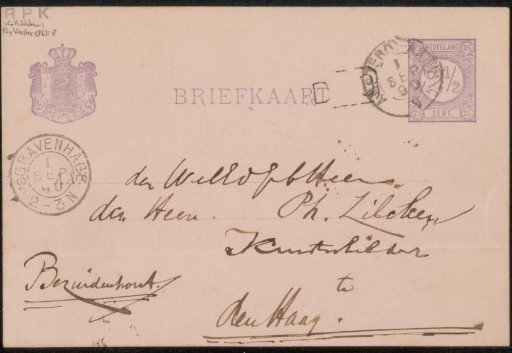 RPK
BRIEFKAART
NEDERLAND
2 1/2
CENT.
'S GRAVENHAGE
1
SEP
90
2-3N
den WelEdGeb Heer
den Heer Ph. Zilcken
Kunstschilder
Bezuidenhout
te
den Haag.